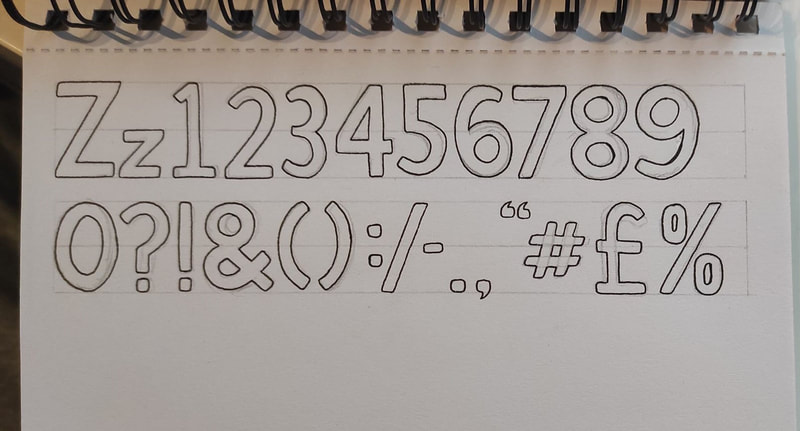 Zz123456789
0?!&():/-.,“#£%